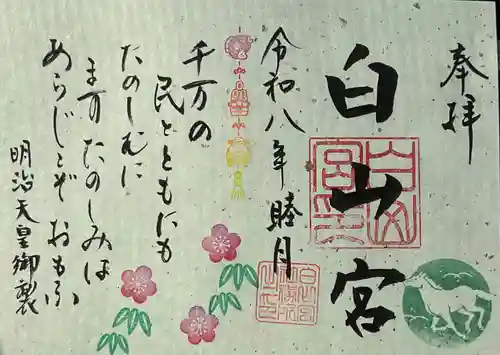 奉拝
白山宮
令和八年睦月
千万の
民とともにも
たのしむに
ますたのしみは
あらじとぞおもふ
明治天皇御製
白山宮印